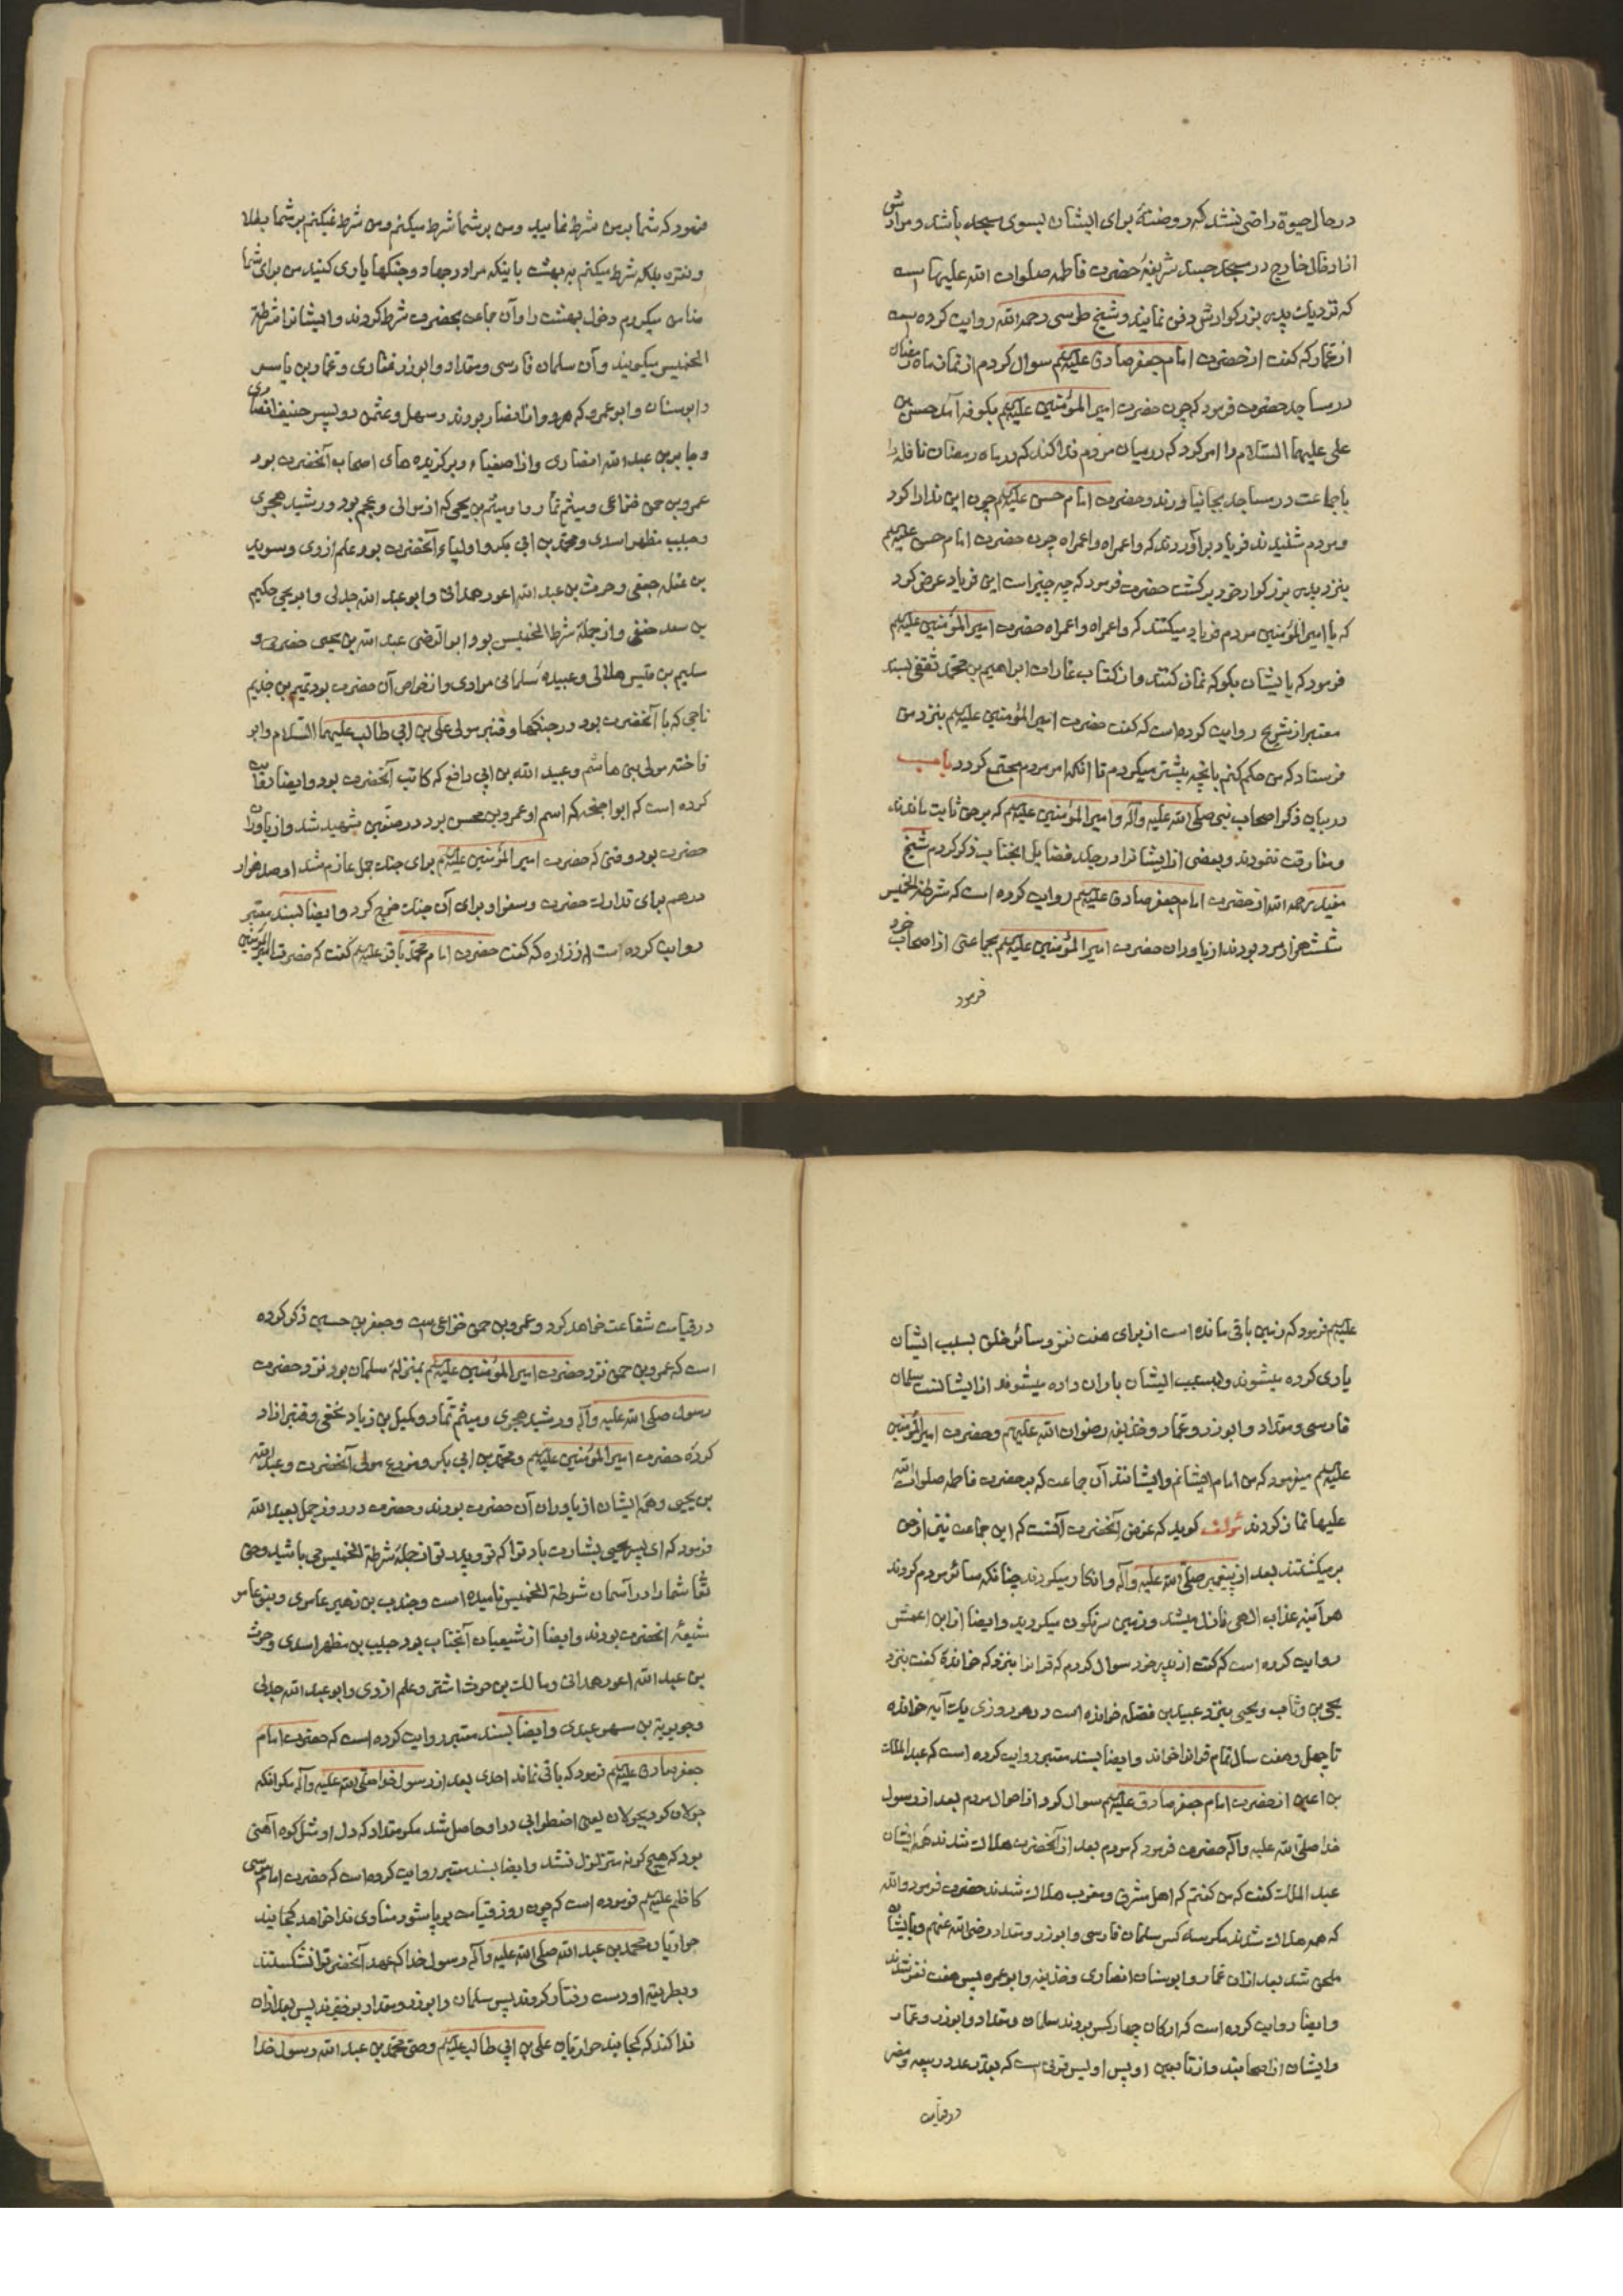 در حال حیوة راضی نشد که روضهٔ برای ایشان بسوی مسجد باشد و مرادش
خارج در مسجد جسد شریفهٔ حضرت فاطمه صلوات الله علیها است
که نزدیک پدر بزرکوارش دفن نمایند و شیخ طوسی رحمه الله روایت کرده است
از عمار که کفت از حضرت امام جعفر صادق علیه‌السلم سوال کردم از نماز ماه رمضان
در مساجد حضرت فرمود که چون حضرت امیر المؤمنین علیه‌السلم بکوفه آمد حسن بن
علی علیهما السلام را امر کرد که در میان مردم ندا کند که در ماه رمضان نافله را
با جماعت در مساجد بجا نیاورند و حضرت امام حسن علیه‌السلم چون این ندا را کرد
و مردم شنیدند فریاد برآوردند که واعمراه واعمراه چون حضرت امام حسن علیه‌السلم
بنزد پدر بزرکوار خود برکشت حضرت فرمود که چه چیز است این فریاد عرض کرد
که یا امیر المؤمنین مردم فریاد میکنند که واعمراه واعمراه حضرت امیر المؤمنین علیه‌السلم
فرمود که بایشان بکو که نماز کنند و از کتاب غارات ابراهیم بن محمد ثقفی بسند
معتبر از شریح روایت کرده است که کفت حضرت امیر المؤمنین علیه‌السلم بنزد من
فرستاد که من حکم کنم بانچه پیشتر میکردم تا آنکه امر مردم مجتمع کردد باب
در بیان ذکر اصحاب نبی صلی الله علیه و آله و امیر المؤمنین علیه‌السلم که بر حق ثابت ماندند
و مفارقت ننمودند و بعضی از ایشانرا در جلد فضایل انجناب ذکر کردم شیخ
مفید رحمه الله از حضرت امام جعفر صادق علیه‌السلم روایت کرده است که شرطة الخمیس
ششهزار مرد بودند از یاوران حضرت امیر المؤمنین علیه‌السلم بجماعتی از اصحاب خود
فرمود
فرمود که شما بر من شرط نمایید و من بر شما شرط میکنم و من شرط نمیکنم بر شما بطلا
و نقره بلکه شرط میکنم به بهشت باینکه مرا در جهاد و جنکها یاری کنید من برای شما
ضامن میکردم دخول بهشت را و آن جماعت بحضرت شرط کردند و ایشانرا شرطة
الخمیس میکویند و آن سلمان فارسی و مقداد و ابوذر غفاری و عمار بن یاسر
و ابو سنان و ابو عمرو که هر دو از انصار بودند و سهل و عثمن دو پسر حنیف انصاری
و جابر بن عبد الله انصاری و از اصفیاء و برکزیده های اصحاب آنحضرت بود
عمرو بن حمق خزاعی و میثم تمار و او میثم بن یحیی که از موالی و عجم بود و رشید هجری
و حبیب مظهر اسدی و محمد بن ابی بکر و اولیاء آنحضرت بود علم ازدی و سوید
بن غفله جعفی و حرث بن عبد الله اعور همدانی و ابو عبد الله جدلی و ابو یحیی حکیم
بن سعد حنفی و از جمله شرطة الخمیس بود ابو الرضی عبد الله بن یحیی حضرمی و
سلیم بن قیس هلالی و عبیده سلمانی مرادی و از خواص آن حضرت بود تمیم بن حذیم
ناجی که با آنحضرت بود در جنکها و قنبر مولی علی بن ابی طالب علیهما السلام و ابو
فاخته مولی بنی هاشم و عبید الله بن ابی رافع که کاتب آنحضرت بود و ایضا روایت
کرده است که ابو اسم او عمرو بن محسن بود در صفین شهید شد و از یاوران
حضرت بود وقتی که حضرت امیر المؤمنین علیه‌السلم برای جنک جمل عازم شد او صد هزار
درهم برای تدارک حضرت و سفر او برای آن جنک خرج کرد و ایضا بسند معتبر
روایت کرده است از زراره که کفت حضرت امام محمد باقر علیه‌السلم کفت که حضرت امیر المؤمنین
علیه‌السلم فرمود که زمین باقی مانده است از برای هفت نفر و سائر خلق بسبب ایشان
یاری کرده میشوند و بسبب ایشان باران داده میشوند از ایشانست سلمان
فارسی و مقداد و ابوذر و عمار و حذیفه رضوان الله علیهم و حضرت امیر المؤمنین
علیه‌السلم میفرمود که من امام ایشانم و ایشانند آن جماعت که بر حضرت فاطمه صلوات الله
علیها نماز کردند مؤلف کوید که غرض آنحضرت آنست که این جماعت نیز از حق
برمیکشتند بعد از پیغمبر صلی الله علیه و آله و انکار میکردند چنانکه سائر مردم کردند
هر آینه عذاب الهی نازل میشد و زمین سرنکون میکردید و ایضا از ابن اعمش
روایت کرده است که کفت از پدر خود سوال کردم که قرانرا بنزد که خواندهٔ کفت بنزد
یحیی بن وثاب و یحیی بنزد عبید بن فضله خوانده است و هر روزی یک آیه خوانده
تا چهل و هفت سال تمام قرانرا خواند و ایضا بسند معتبر روایت کرده است که عبد الملک
بن اعین از حضرت امام جعفر صادق علیه‌السلم سوال کرد از احوال مردم بعد از رسول
خدا صلی الله علیه و آله حضرت فرمود که مردم بعد از آنحضرت هلاک شدند همه ایشان
عبد الملک کفت که من کفتم که اهل مشرق و مغرب هلاک شدند حضرت فرمود والله
که همه هلاک شدند مکر سه کس سلمان فارسی و ابوذر و مقداد رضی الله عنهم و بایشان
ملحق شد بعد از ان عمار و ابو سنان انصاری و حذیفه و ابو عمره پس هفت نفر شدند
و ایضا روایت کرده است که ارکان چهار کس بودند سلمان و مقداد و ابوذر و عمار
و ایشان از اصحابند و از تابعین اویس اویس قرنی است که بقدر عدد ربیعه و مضر
در قیامت
در قیامت شفاعت خواهد کرد و عمرو بن حمق خزاعی است و جعفر بن حسین ذکر کرده
است که عمرو بن حمق نزد حضرت امیر المؤمنین علیه‌السلم بمنزلهٔ سلمان بود نزد حضرت
رسول صلی الله علیه و آله و رشید هجری و میثم تمار و کمیل بن زیاد نخعی و قنبر ازاد
کردهٔ حضرت امیر المؤمنین علیه‌السلم و محمد بن ابی بکر و مزرع مولی آنحضرت و عبد الله
بن یحیی و همه ایشان از یاوران آن حضرت بودند و حضرت در روز جمل بعبد الله
فرمود که ای پسر یحیی بشارت باد ترا که تو و پدر تو از جملهٔ شرطة الخمیس می باشید و حق
تعا شما را در آسمان شرطة الخمیس نامیده است و جندب بن زهیر عامری و بنو عامر
شیعهٔ آنحضرت بودند و ایضا از شیعیان آنجناب بود حبیب بن مظهر اسدی و حرث
بن عبد الله اعور همدانی و مالک بن حرث اشتر و علم ازدی و ابو عبد الله جدلی
و جویریة بن سهر عبدی و ایضا بسند معتبر روایت کرده است که حضرت امام
جعفر صادق علیه‌السلم فرمود که باقی نماند احدی بعد از رسول خدا صلی الله علیه و آله مکر آنکه
جولان کرد بجولان یعنی اضطرابی در او حاصل شد مکر مقداد که دل او مثل کوه آهنی
بود که هیچ کونه متزلزل نشد و ایضا بسند معتبر روایت کرده است که حضرت امام موسی
کاظم علیه‌السلم فرموده است که چون روز قیامت برپا شود منادی ندا خواهد کرد کجایند
حواریان محمد بن عبد الله صلی الله علیه و آله رسول خدا که عهد آنحضرترا نشکستند
و بطریقهٔ او رست رفتار کردند پس سلمان و ابوذر و مقداد برخیزند پس بعد ازان
ندا کند که کجایند حواریان علی بن ابی طالب علیه‌السلم وصی محمد بن عبد الله رسول خدا